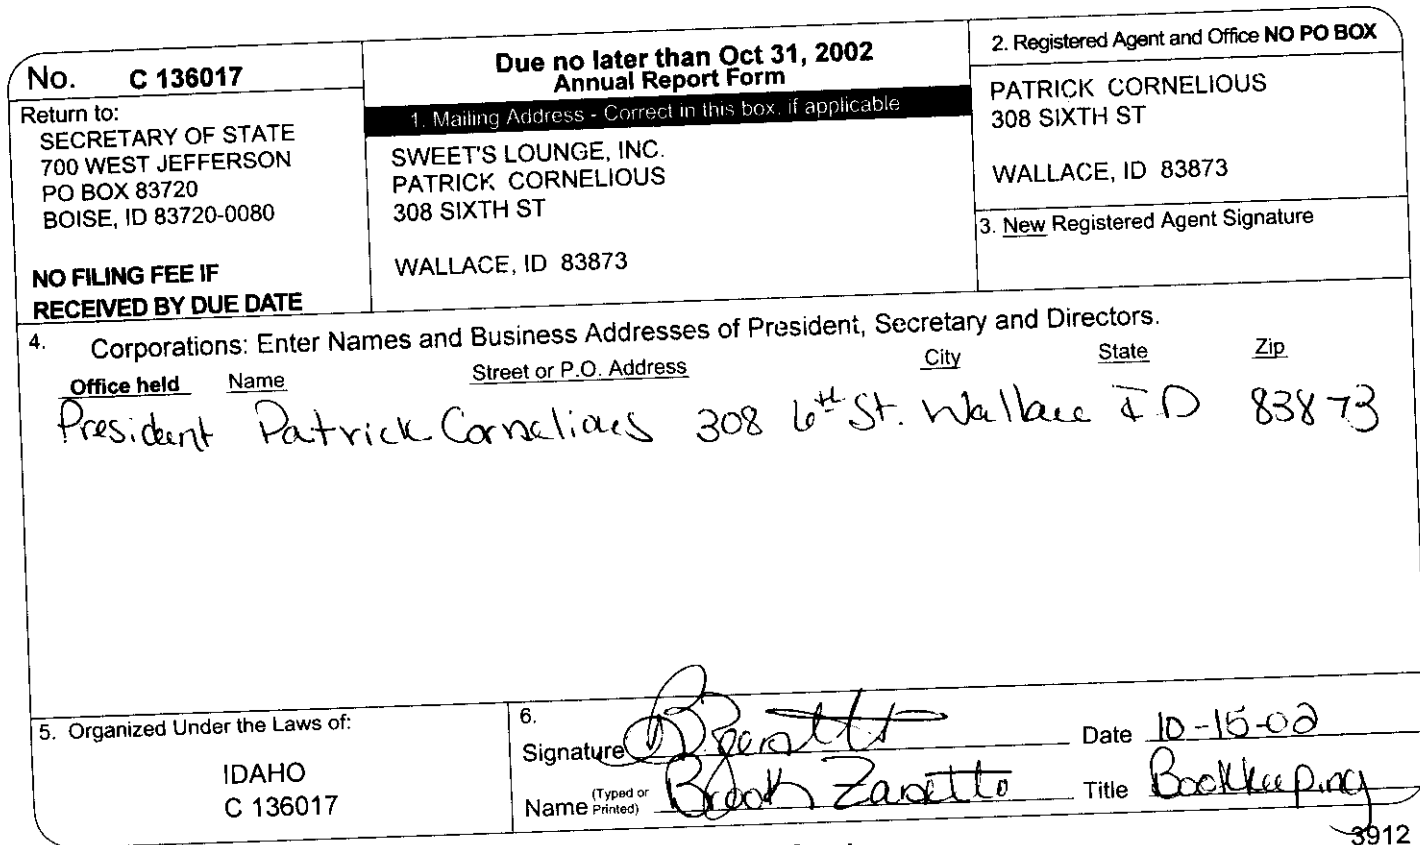 No. C 136017
Return to:
SECRETARY OF STATE
700 WEST JEFFERSON
PO BOX 83720
BOISE, ID 83720-0080
NO FILING FEE IF
RECEIVED BY DUE DATE
Due no later than Oct 31, 2002
Annual Report Form
1. Mailing Address - Correct in this box, if applicable
SWEET'S LOUNGE, INC.
PATRICK CORNELIOUS
308 SIXTH ST
WALLACE, ID 83873
2. Registered Agent and Office NO PO BOX
PATRICK CORNELIOUS
308 SIXTH ST
WALLACE, ID 83873
3. New Registered Agent Signature
4. Corporations: Enter Names and Business Addresses of President, Secretary and Directors.
Office held Name Street or P.O. Address City State Zip
President Patrick Cornelious 308 6th St. Wallace ID 83873
5. Organized Under the Laws of:
IDAHO
C 136017
6.
Signature
Date 10-15-02
Name (Typed or Printed) Brook Zanetto
Title Bookkeeping
3912